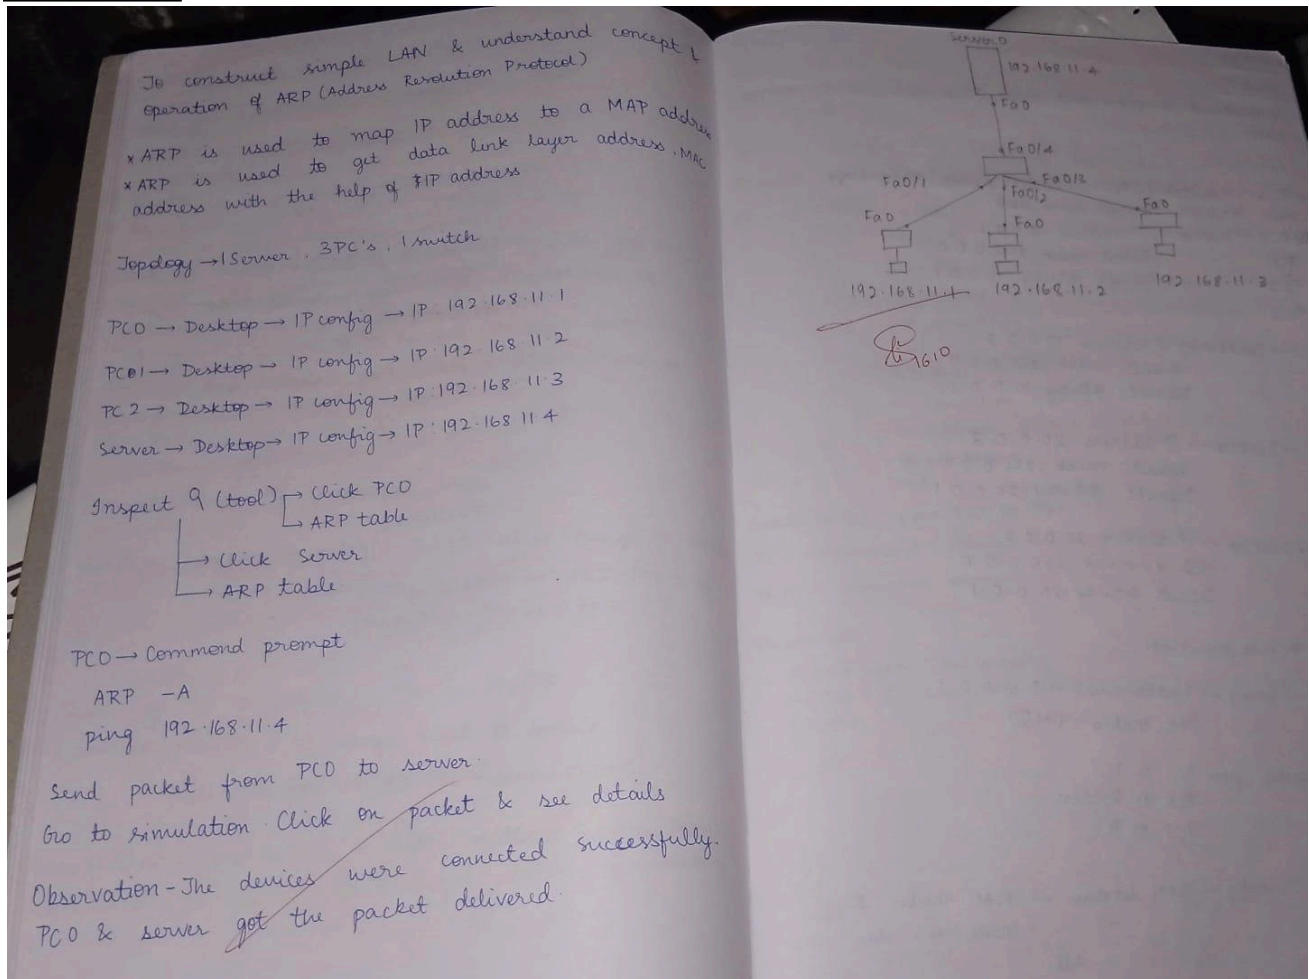 To construct simple LAN & understand concept &
operation of ARP (Address Resolution Protocol)
* ARP is used to map IP address to a MAP address
* ARP is used to get data link layer address, MAC
address with the help of IP address
Topology → 1 Server, 3PC's, 1 switch
PC0 → Desktop → IP config → IP: 192.168.11.1
PC1 → Desktop → IP config → IP: 192.168.11.2
PC2 → Desktop → IP config → IP: 192.168.11.3
Server → Desktop → IP config → IP: 192.168.11.4
Inspect (tool) → Click PC0
→ ARP table
→ Click Server
→ ARP table
PC0 → Commond prompt
ARP -A
ping 192.168.11.4
Send packet from PC0 to server.
Go to simulation. Click on packet & see details
Observation - The devices were connected successfully.
PC0 & server got the packet delivered.
Server0
192.168.11.4
Fa0
Fa0/4
Fa0/1
Fa0/2
Fa0/3
Fa0
Fa0
Fa0
192.168.11.1
192.168.11.2
192.168.11.3